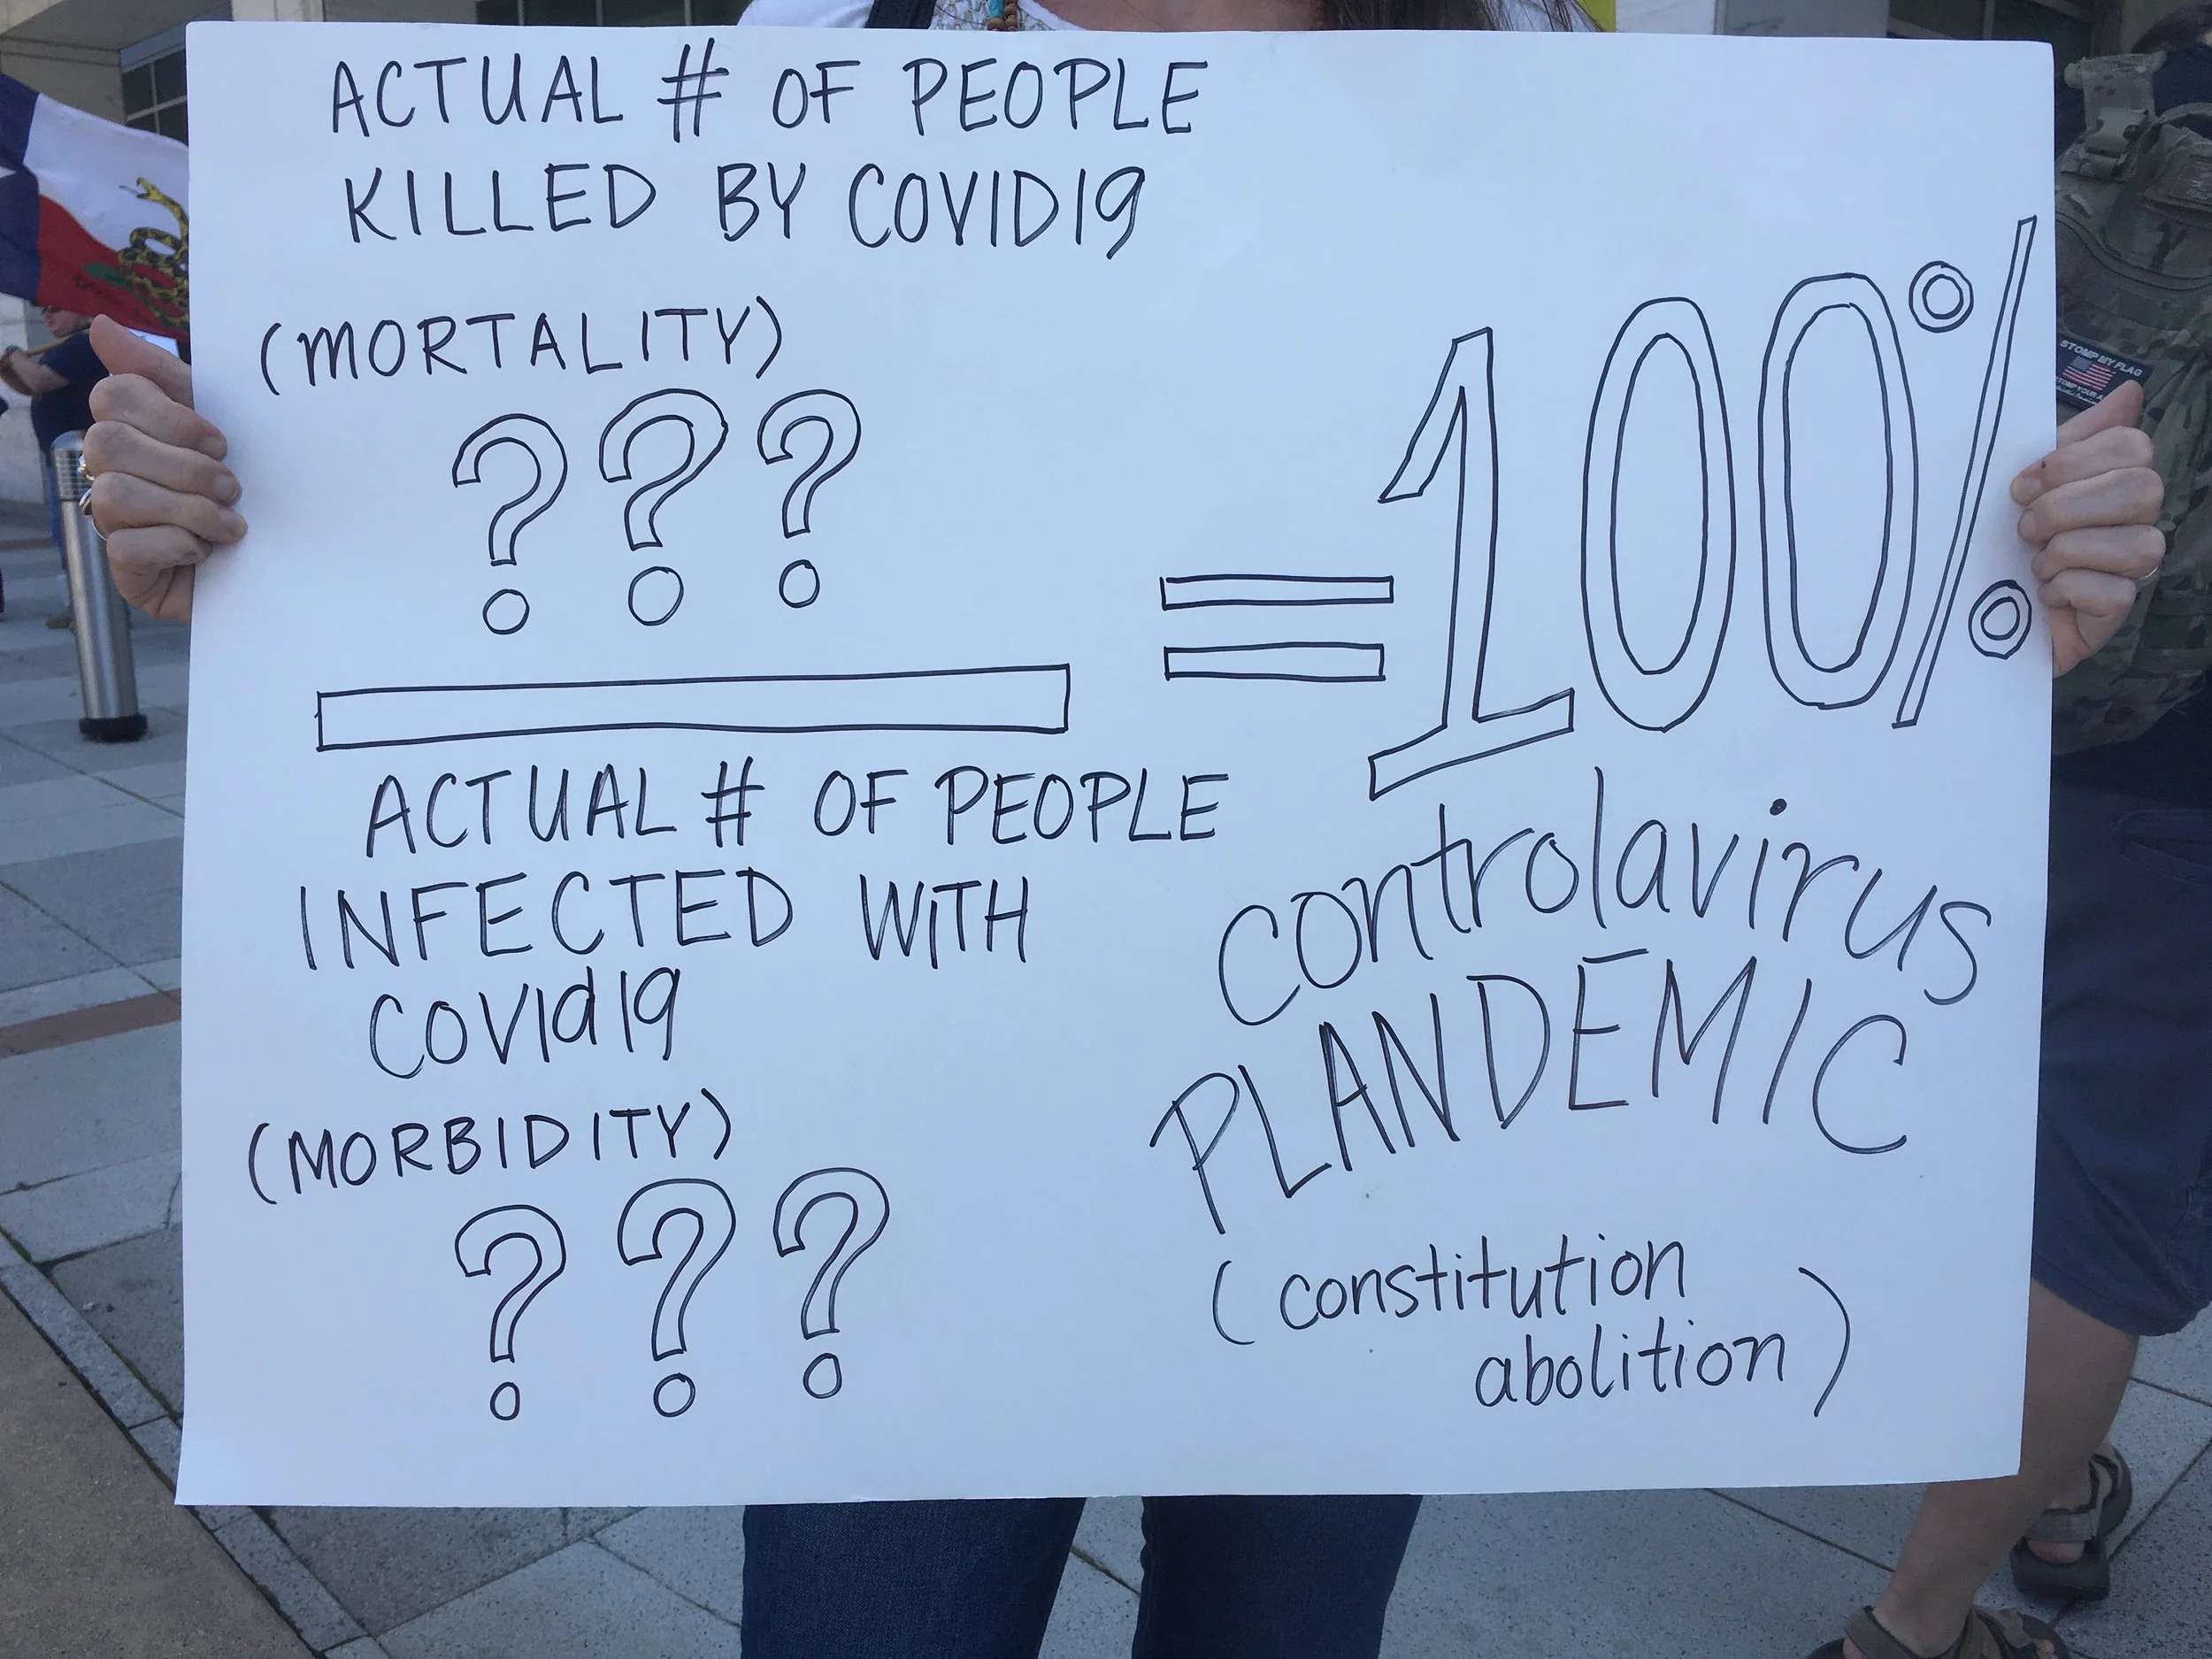 ACTUAL # OF PEOPLE
KILLED BY COVID19
(MORTALITY)
???
ACTUAL # OF PEOPLE
INFECTED WITH
COVId19
(MORBIDITY)
???
=100%
controlavirus
PLANDEMIC
(constitution
abolition)
STOMP MY FLAG